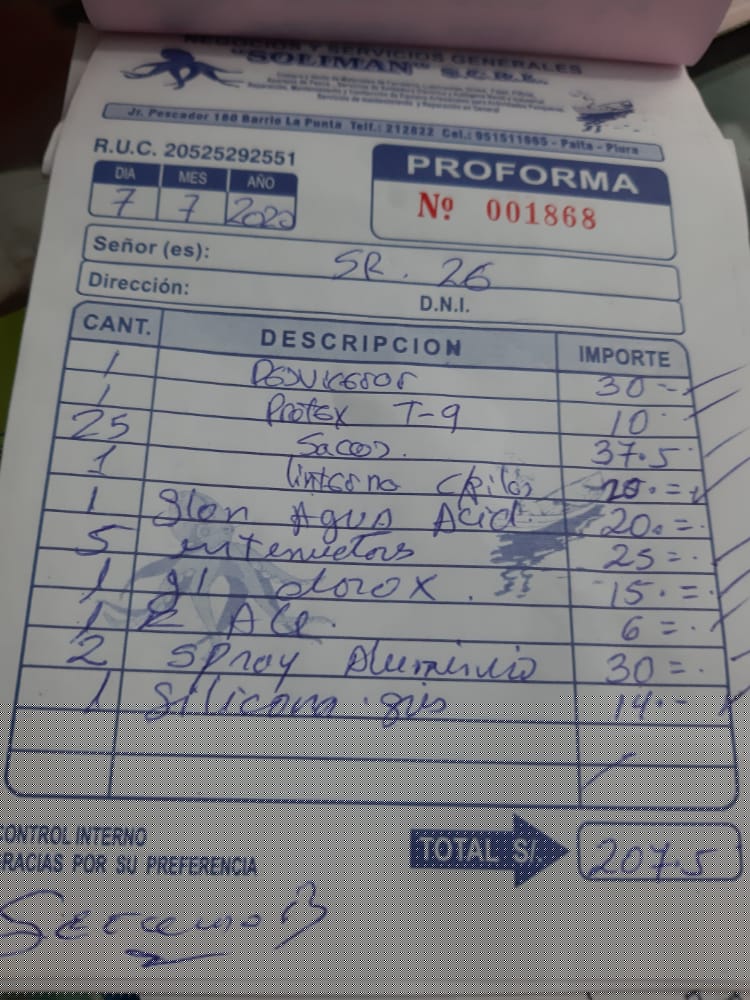 NEGOCIOS Y SERVICIOS GENERALES
"SOLIMAN" S.C.R.L.
Jr. Pescador 180 Barrio La Punta Telf.: 212822 Cel.: 951511995 - Paita - Piura
R.U.C. 20525292551
DIA MES AÑO
7 7 2020
PROFORMA
Nº 001868
Señor (es): SR. 26
Dirección: D.N.I.
CANT. DESCRIPCION IMPORTE
1 30
1 Protex T-9 10
25 Sacos. 37.5
1 linterna c/pilas 20.=
1 Glon Agua Acid. 20.=
5 25=
1 gl clorox. 15.=
1 K Ace. 6=
2 Spray Aluminio 30=
1 Silicona gris 14.-
CONTROL INTERNO
GRACIAS POR SU PREFERENCIA
TOTAL S/. 207.5